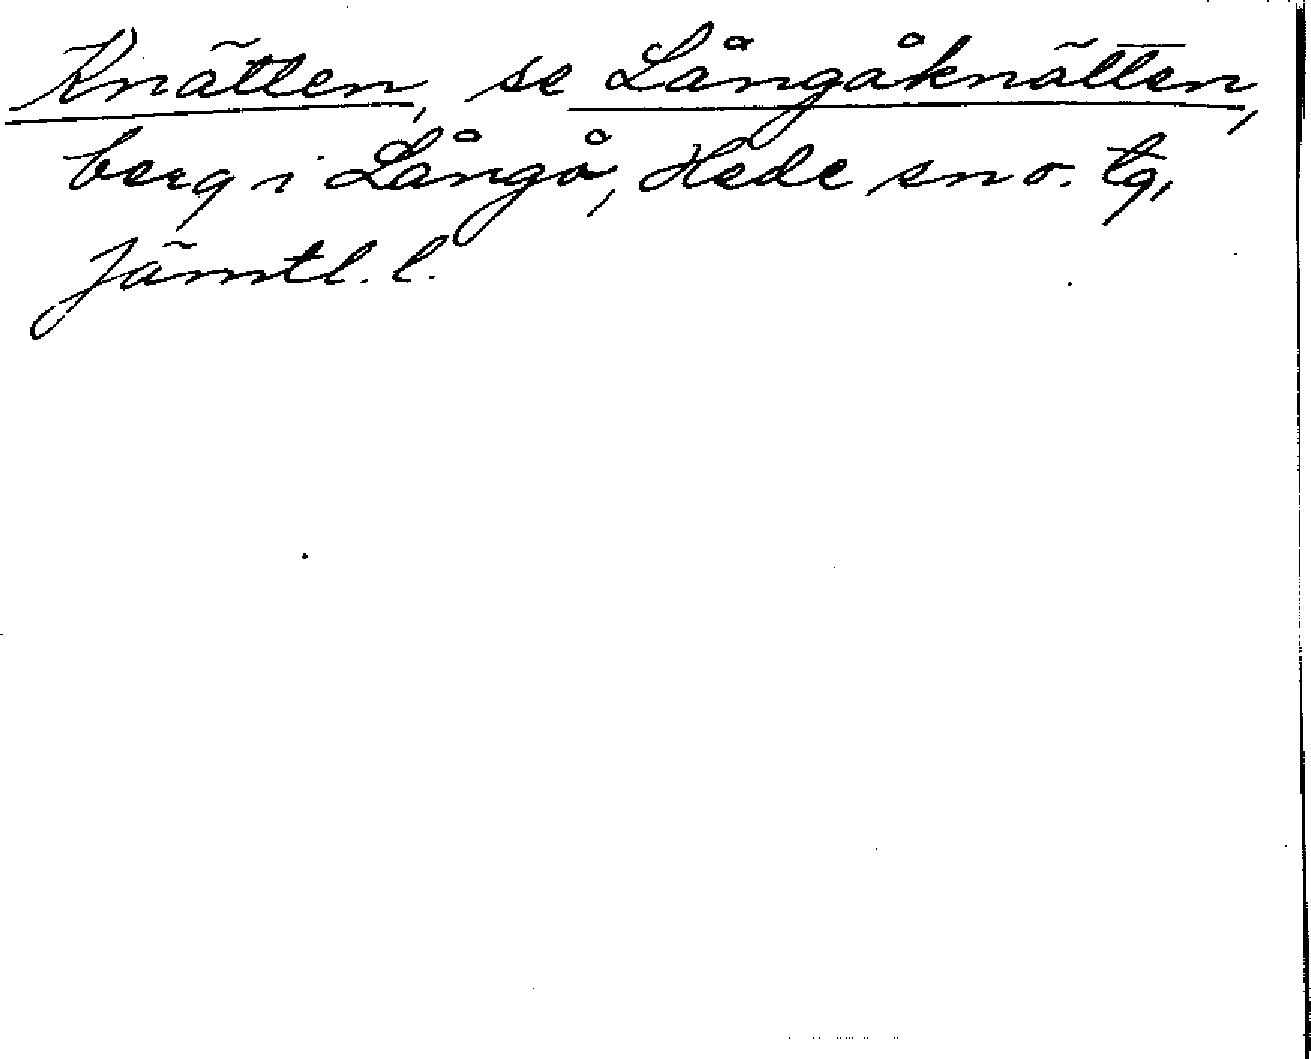 Knätten, se Långåknätten,
berg i Långå, Hede sn o. tg,
Jämtl. l.